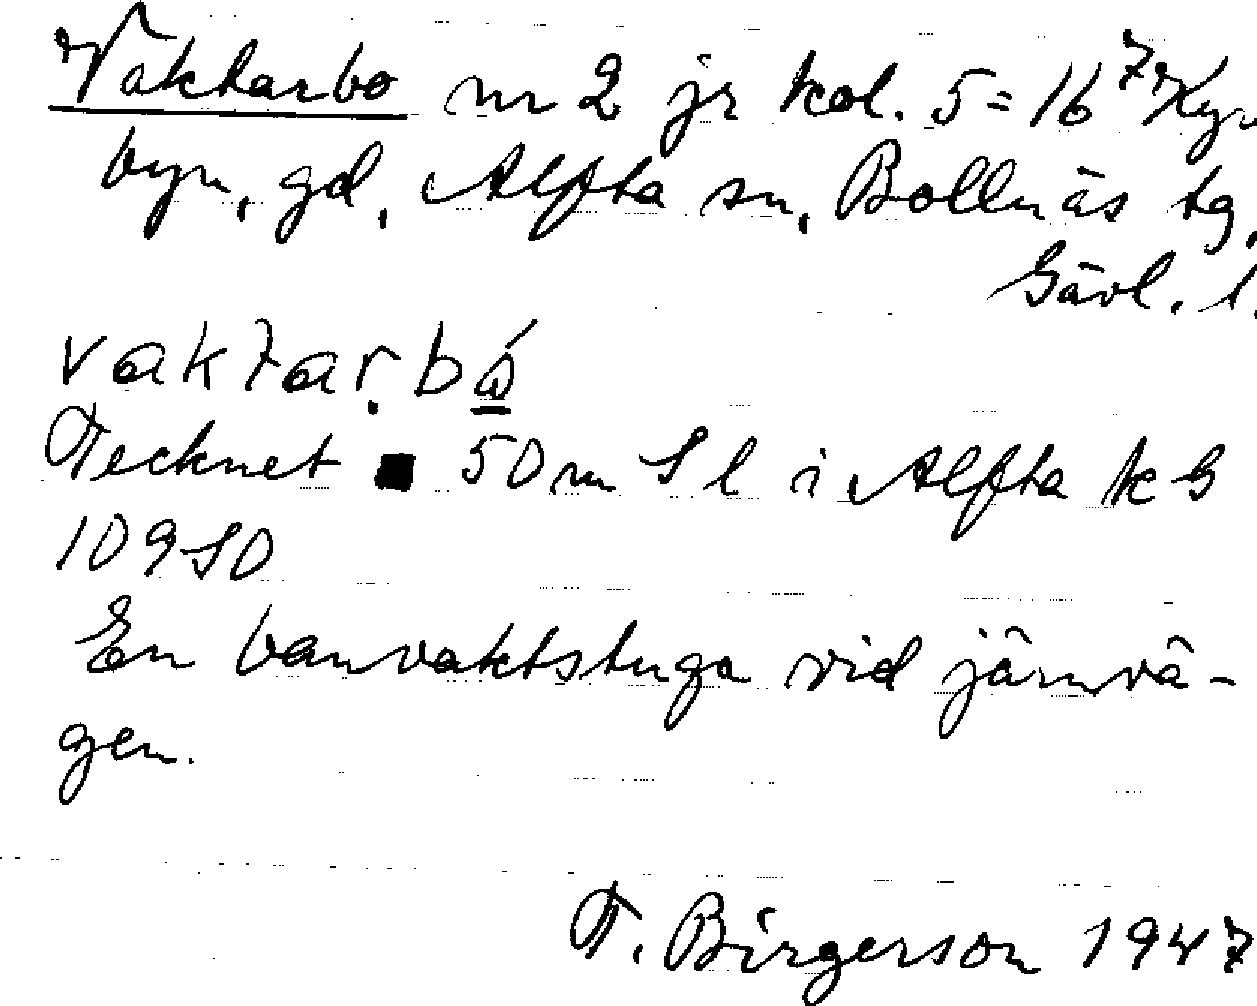 Vaktarbo nr 2 jr kol. 5 = 16⁷ Kyr
byn, gd, Alfta sn, Bollnäs tg,
Gävl. l.
vaktarbǻ̱
Tecknet ■ 50 m S l i Alfta k G
109 SO
En banvaktstuga vid järnvä-
gen.
T. Birgerson 1947